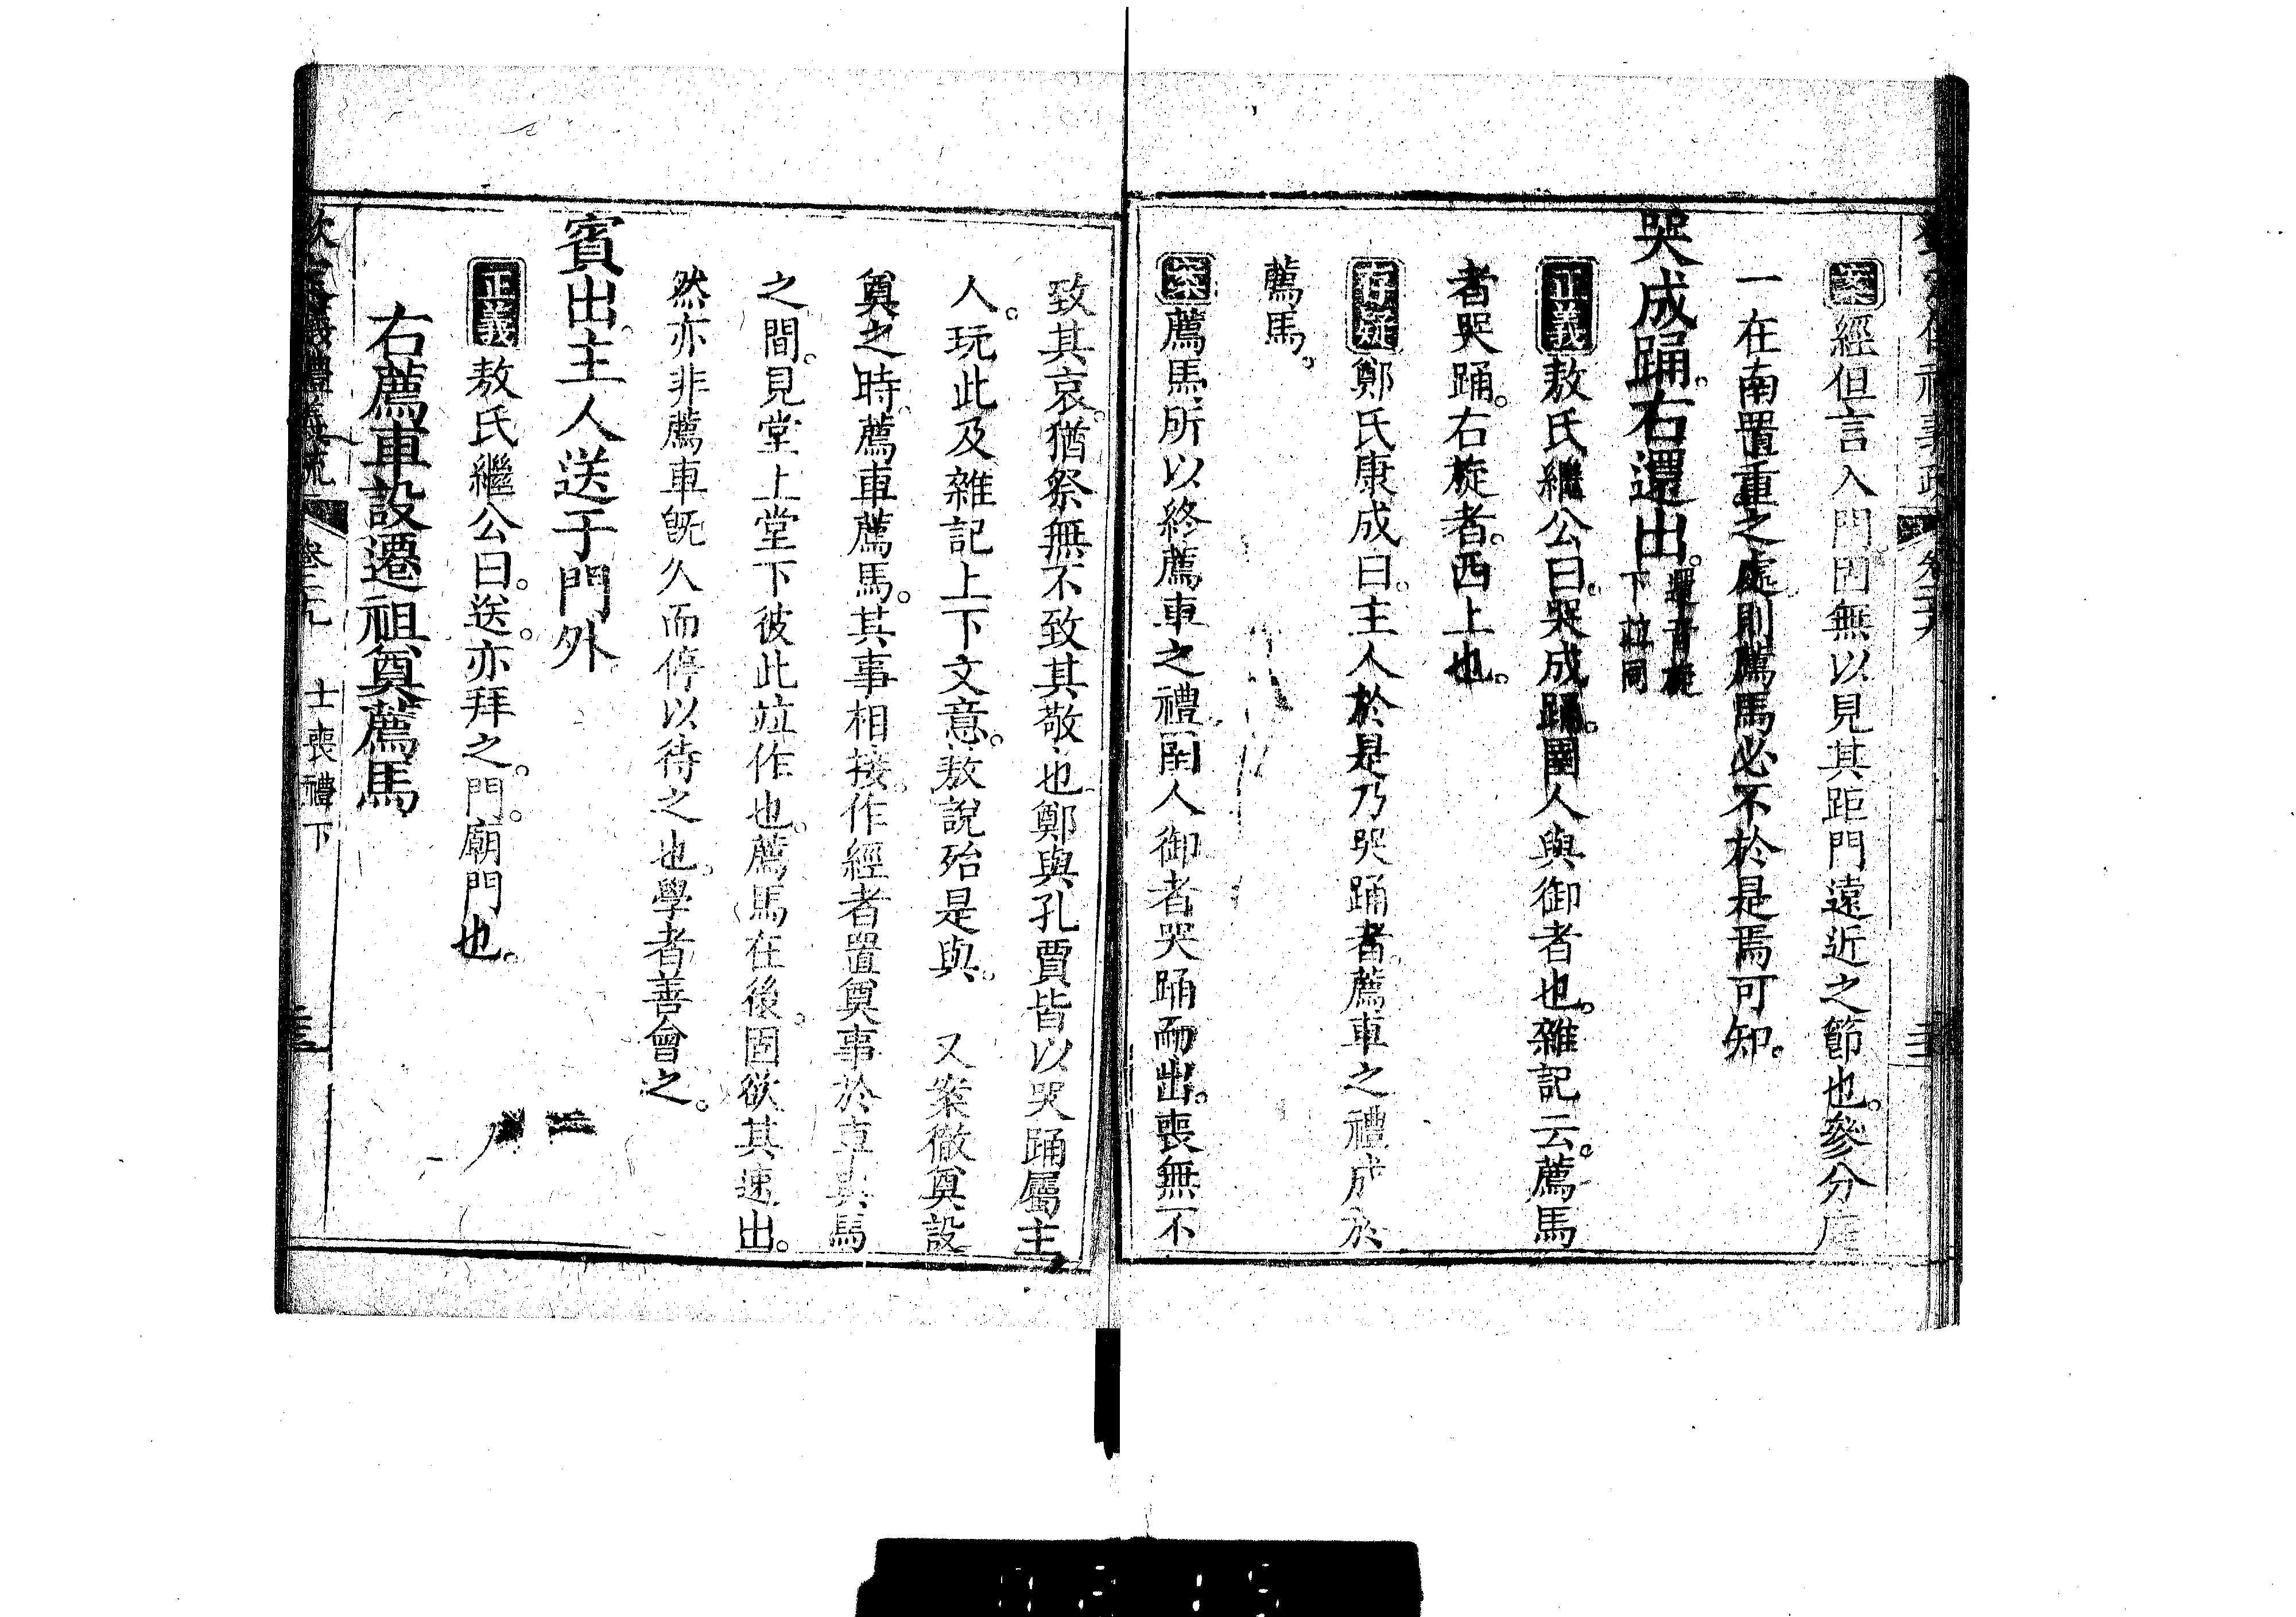 案經但言入門固無以見其距門遠近之節也。參分庭
一在南置重之處。則薦馬必不於是焉可知。
哭成踊。右還出。還音旋下竝同
正義敖氏繼公曰。哭成踊。圉人與御者也。雜記云。薦馬
者哭踊。右旋者。西上也。
存疑鄭氏康成曰。主人於是乃哭踊者。薦車之禮成於
薦馬。
案薦馬所以終薦車之禮。圉人御者哭踊而出。喪無不
致其哀。猶祭無不致其敬也。鄭與孔賈皆以哭踊屬主
人。玩此及雜記上下文意。敖說殆是與。 又案徹奠設
奠之時。薦車薦馬。其事相接。作經者置奠事於車馬
之間。見堂上堂下彼此竝作也。薦馬在後。固欲其速出。
然亦非薦車旣久而停以待之也。學者善會之。
賓出。主人送于門外
正義敖氏繼公曰。送。亦拜之。門。廟門也。
右薦車設遷祖奠薦馬
卷二九 士喪禮下